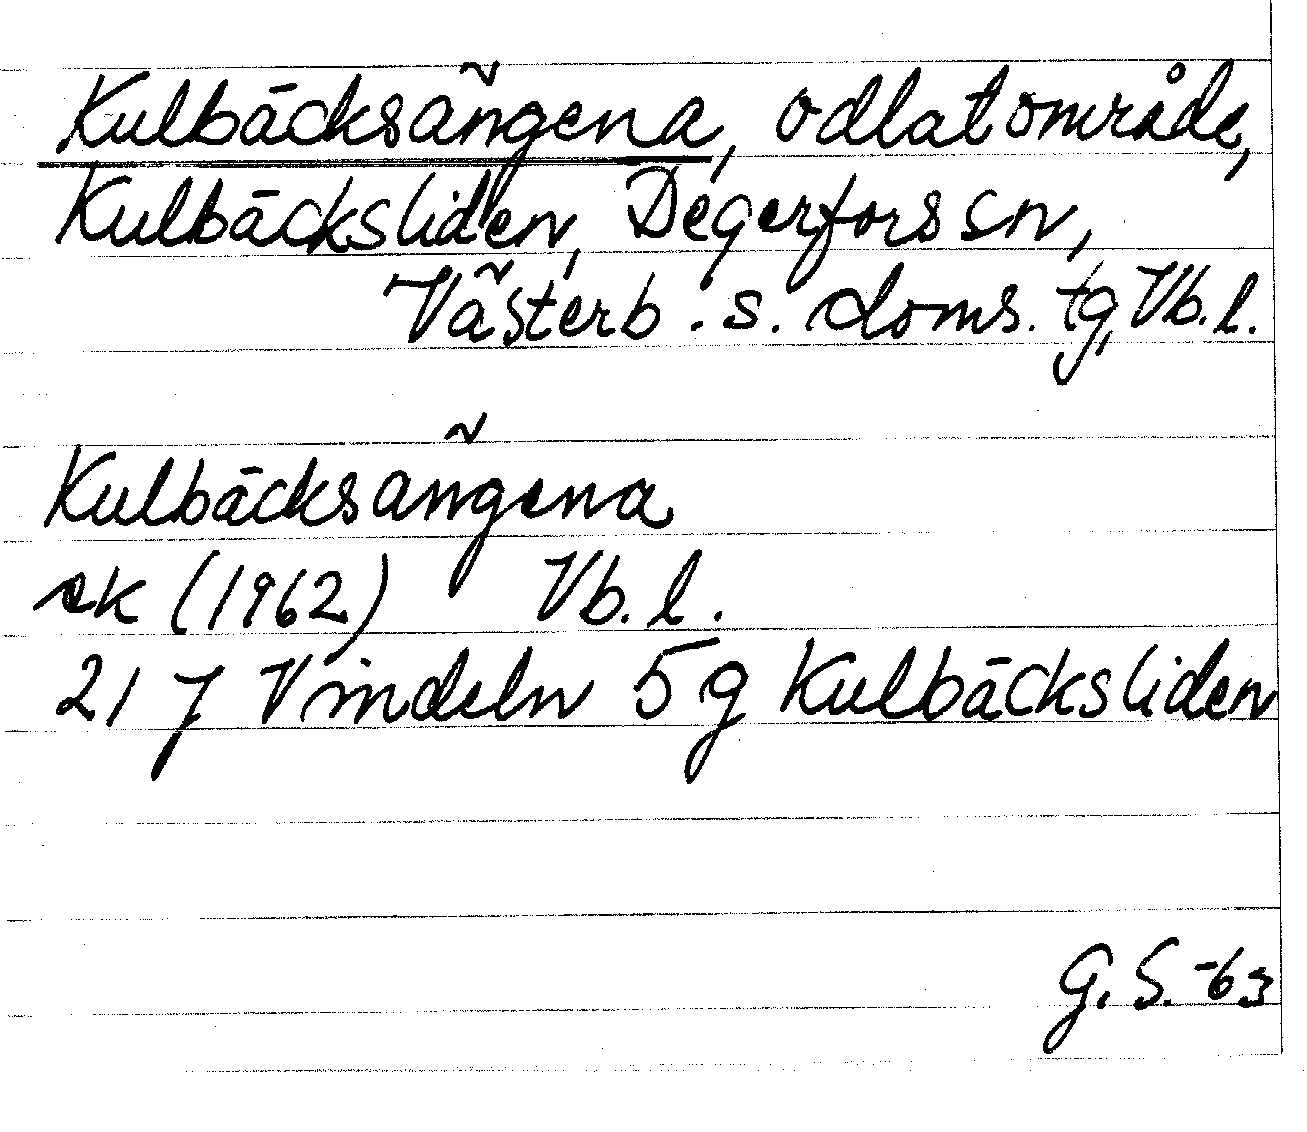 Kulbäcksängena, odlat område,
Kulbäcksliden, Degerfors sn,
Västerb. s. doms. tg, Vb. l.
Kulbäcksängena
ek (1962) Vb. l.
21 J Vindeln 5 g Kulbäcksliden
G. S. -63